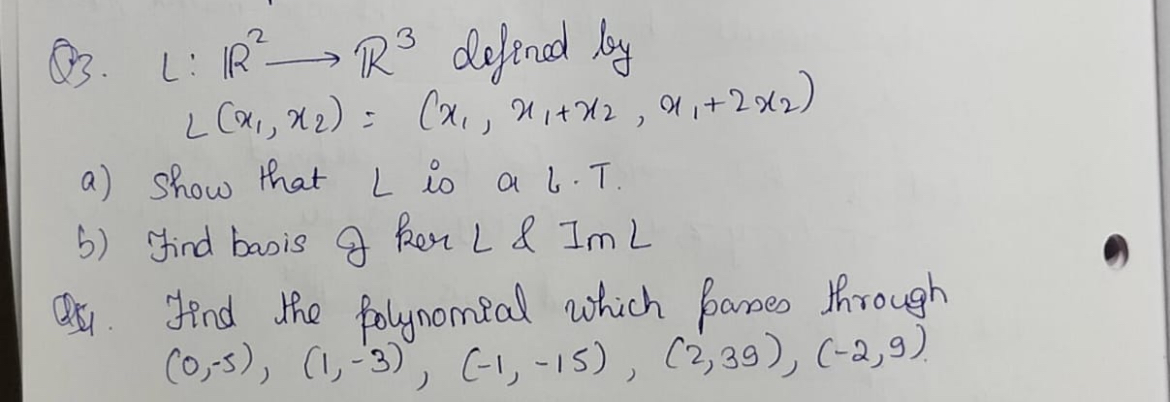 Q3. L: ℝ² → ℝ³ defined by
L(x₁, x₂) = (x₁, x₁+x₂, x₁+2x₂)
a) Show that L is a L.T.
b) Find basis of ker L & Im L
Q4. Find the polynomial which passes through
(0,-5), (1,-3), (-1,-15), (2,39), (-2,9).